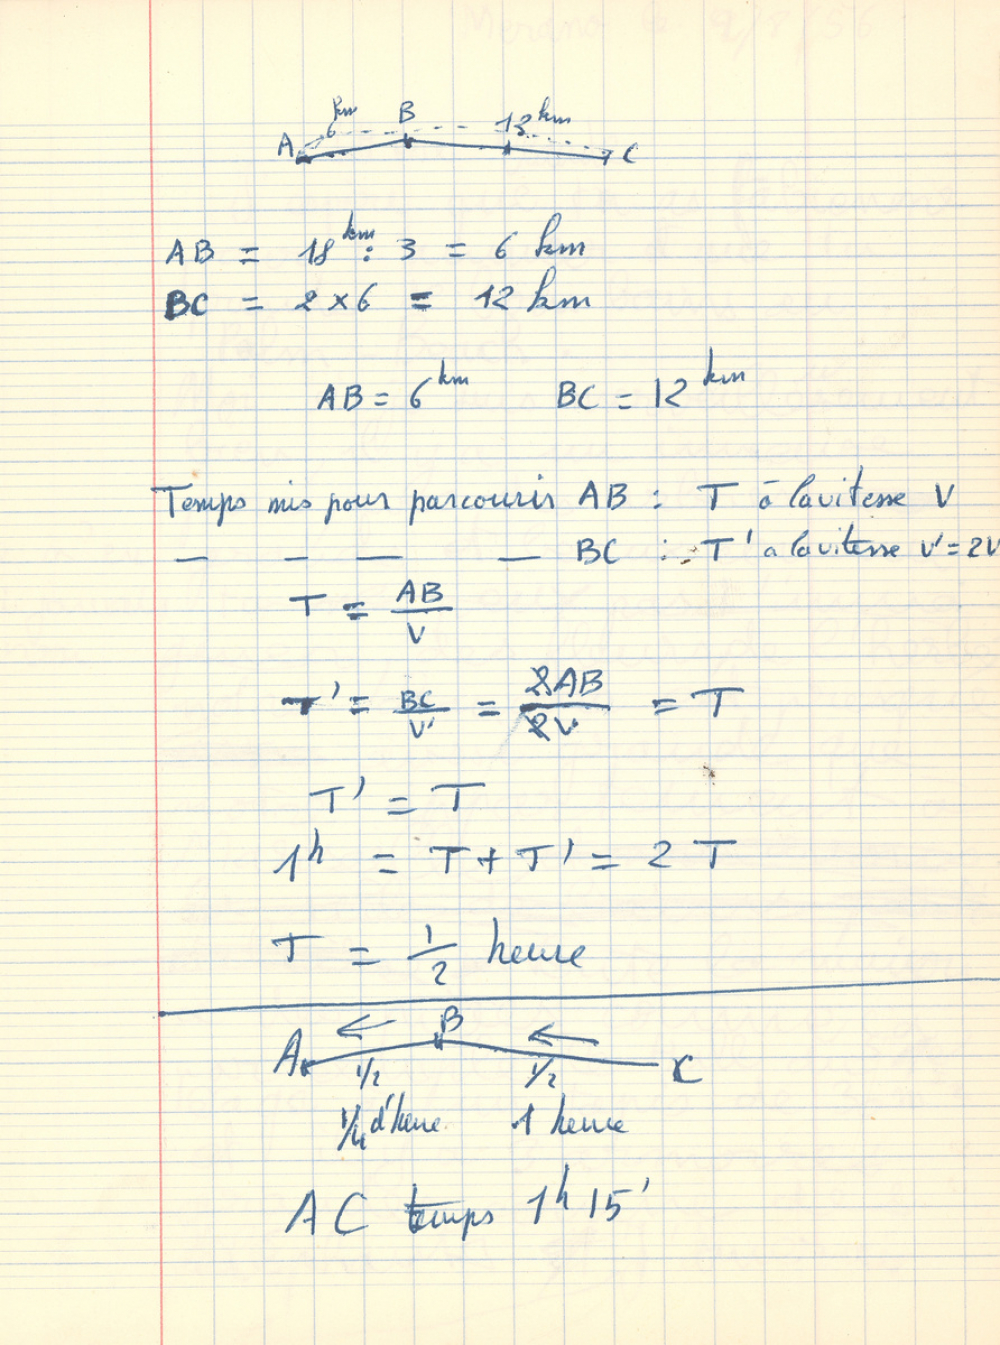 km
B
6
13 km
A
C
AB = 18 km : 3 = 6 km
BC = 2 × 6 = 12 km
AB = 6 km BC = 12 km
Temps mis pour parcourir AB : T à la vitesse V
— — — — BC : T' a la vitesse V' = 2V
T = AB/V
T' = BC/V' = 2AB/2V = T
T' = T
1h = T + T' = 2 T
T = 1/2 heure
A B C
1/2 1/2
1/4 d'heure 1 heure
AC temps 1h 15'